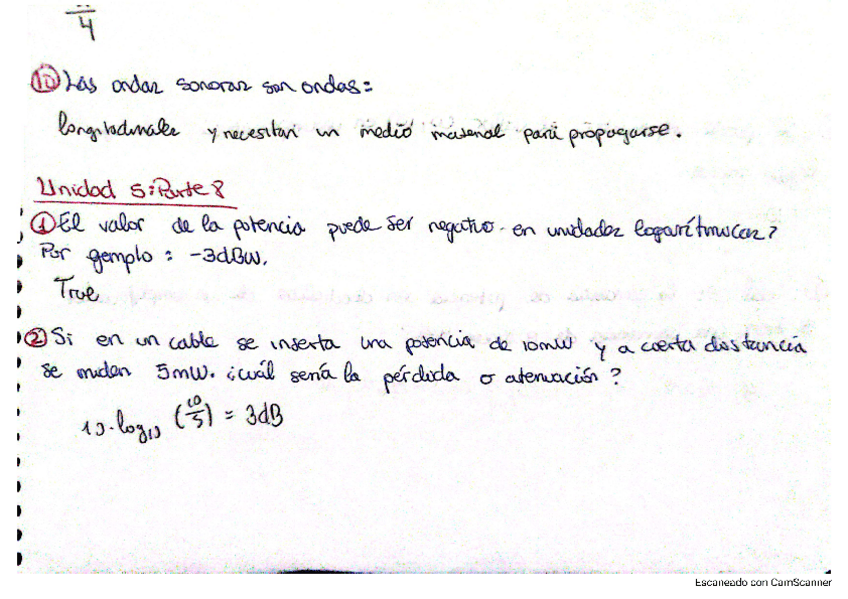 4
10 Las ondas sonoras son ondas:
longitudinales y necesitan un medio material para propagarse.
Unidad 5: Parte 8
1 El valor de la potencia puede ser negativo en unidades logarítmicas?
Por ejemplo: -3dBW.
True
2 Si en un cable se inserta una potencia de 10mW y a cierta distancia
se miden 5mW. ¿cuál sería la pérdida o atenuación?
10·log10 (10/5) = 3dB
Escaneado con CamScanner